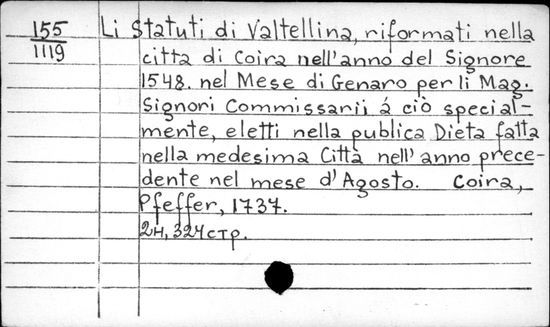 155
1119
Li Statuti di Valtellina, riformati nella
citta di Coira nell'anno del Signore
1548. nel Mese di Genaro per li Mag.
Signori Commissarij á ciò special-
mente, eletti nella publica Dieta fatta
nella medesima Città nell' anno prece-
dente nel mese d'Agosto. Coira,
Pfeffer, 1737.
2н, 324 стр.